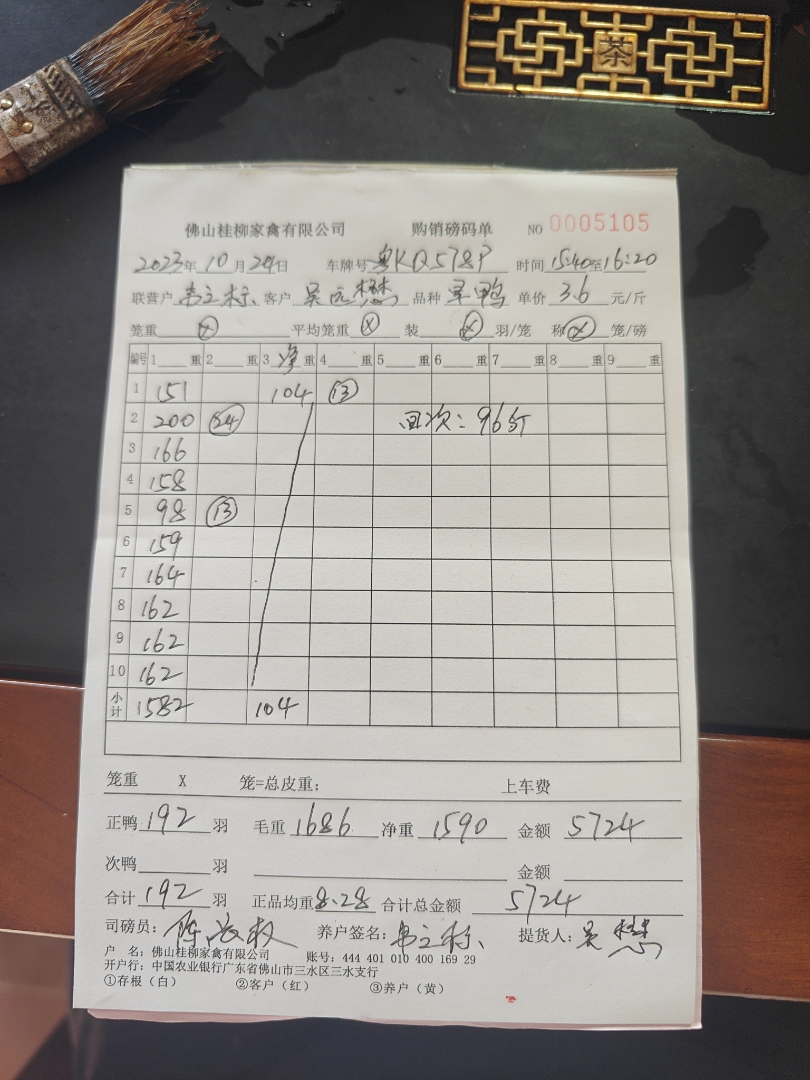 茶
佛山桂柳家禽有限公司 购销磅码单 NO 0005105
2023年10月24日 车牌号 粤KQ578P 时间 15:40至16:20
联营户 韦立标 客户 吴远懋 品种 旱鸭 单价 3.6 元/斤
笼重 ⓧ 平均笼重 ⓧ 装 ⓧ 羽/笼 称 ⓧ 笼/磅
编号 1 重 2 重 3 净 重 4 重 5 重 6 重 7 重 8 重 9 重
1 151 104 ⑬
2 200 24 回次:96斤
3 166
4 158
5 98 ⑬
6 159
7 164
8 162
9 162
10 162
小计 1582 104
笼重 X 笼=总皮重: 上车费
正鸭 192 羽 毛重 1686 净重 1590 金额 5724
次鸭 羽 金额
合计 192 羽 正品均重 8.28 合计总金额 5724
司磅员: 陈 权 养户签名: 韦立标 提货人: 吴 懋
户 名: 佛山桂柳家禽有限公司 账号: 444 401 010 400 169 29
开户行: 中国农业银行广东省佛山市三水区三水支行
①存根(白) ②客户(红) ③养户(黄)